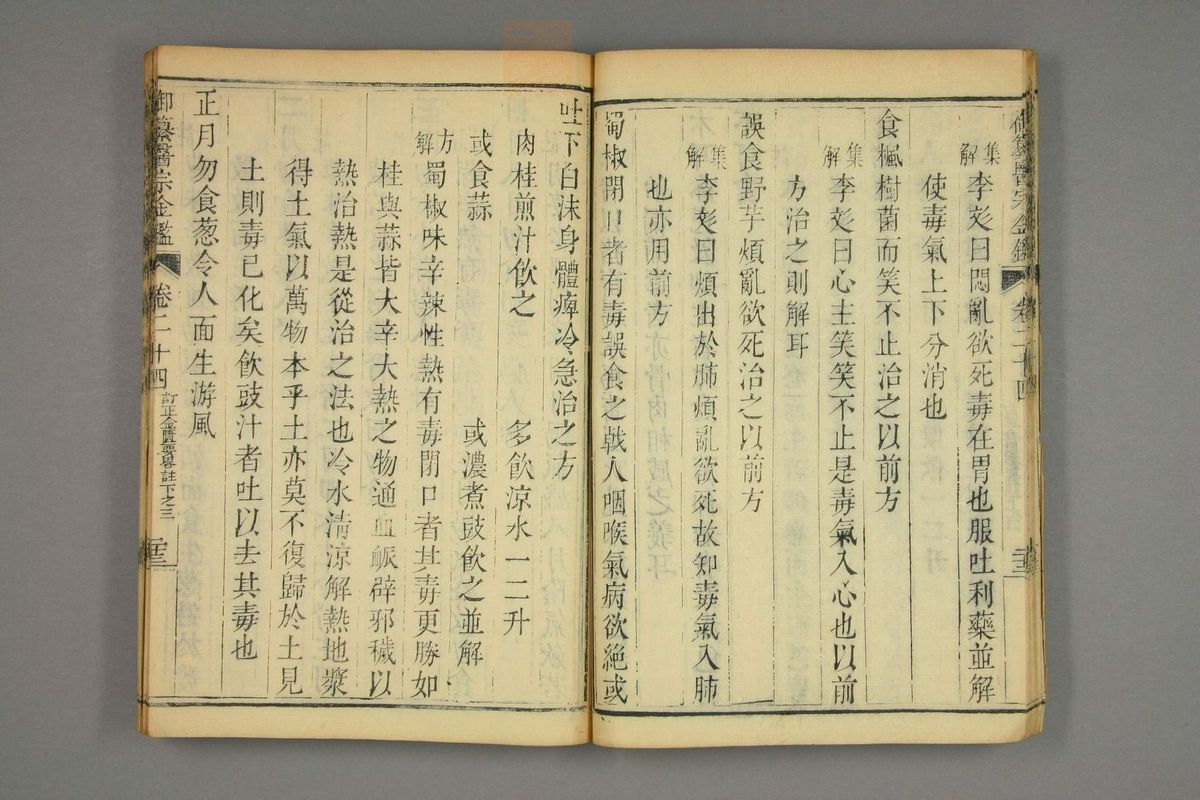 御纂醫宗金鑑 卷二十四 二十三
集解 李彣曰悶亂欲死毒在胃也服吐利藥並解
使毒氣上下分消也
食楓樹菌而笑不止治之以前方
集解 李彣曰心主笑笑不止是毒氣入心也以前
方治之則解耳
誤食野芋煩亂欲死治之以前方
集解 李彣曰煩出於肺煩亂欲死故知毒氣入肺
也亦用前方
蜀椒閉口者有毒誤食之戟人咽喉氣病欲絕或
吐下白沫身體痺冷急治之方
肉桂煎汁飲之 多飲涼水一二升
或食蒜 或濃煮豉飲之並解
方解 蜀椒味辛辣性熱有毒閉口者其毒更勝如
桂與蒜皆大辛大熱之物通血脈辟邪穢以
熱治熱是從治之法也冷水清涼解熱地漿
得土氣以萬物本乎土亦莫不復歸於土見
土則毒已化矣飲豉汁者吐以去其毒也
正月勿食葱令人面生游風
御纂醫宗金鑑 卷二十四 訂正金匱要畧註下之三 二十三